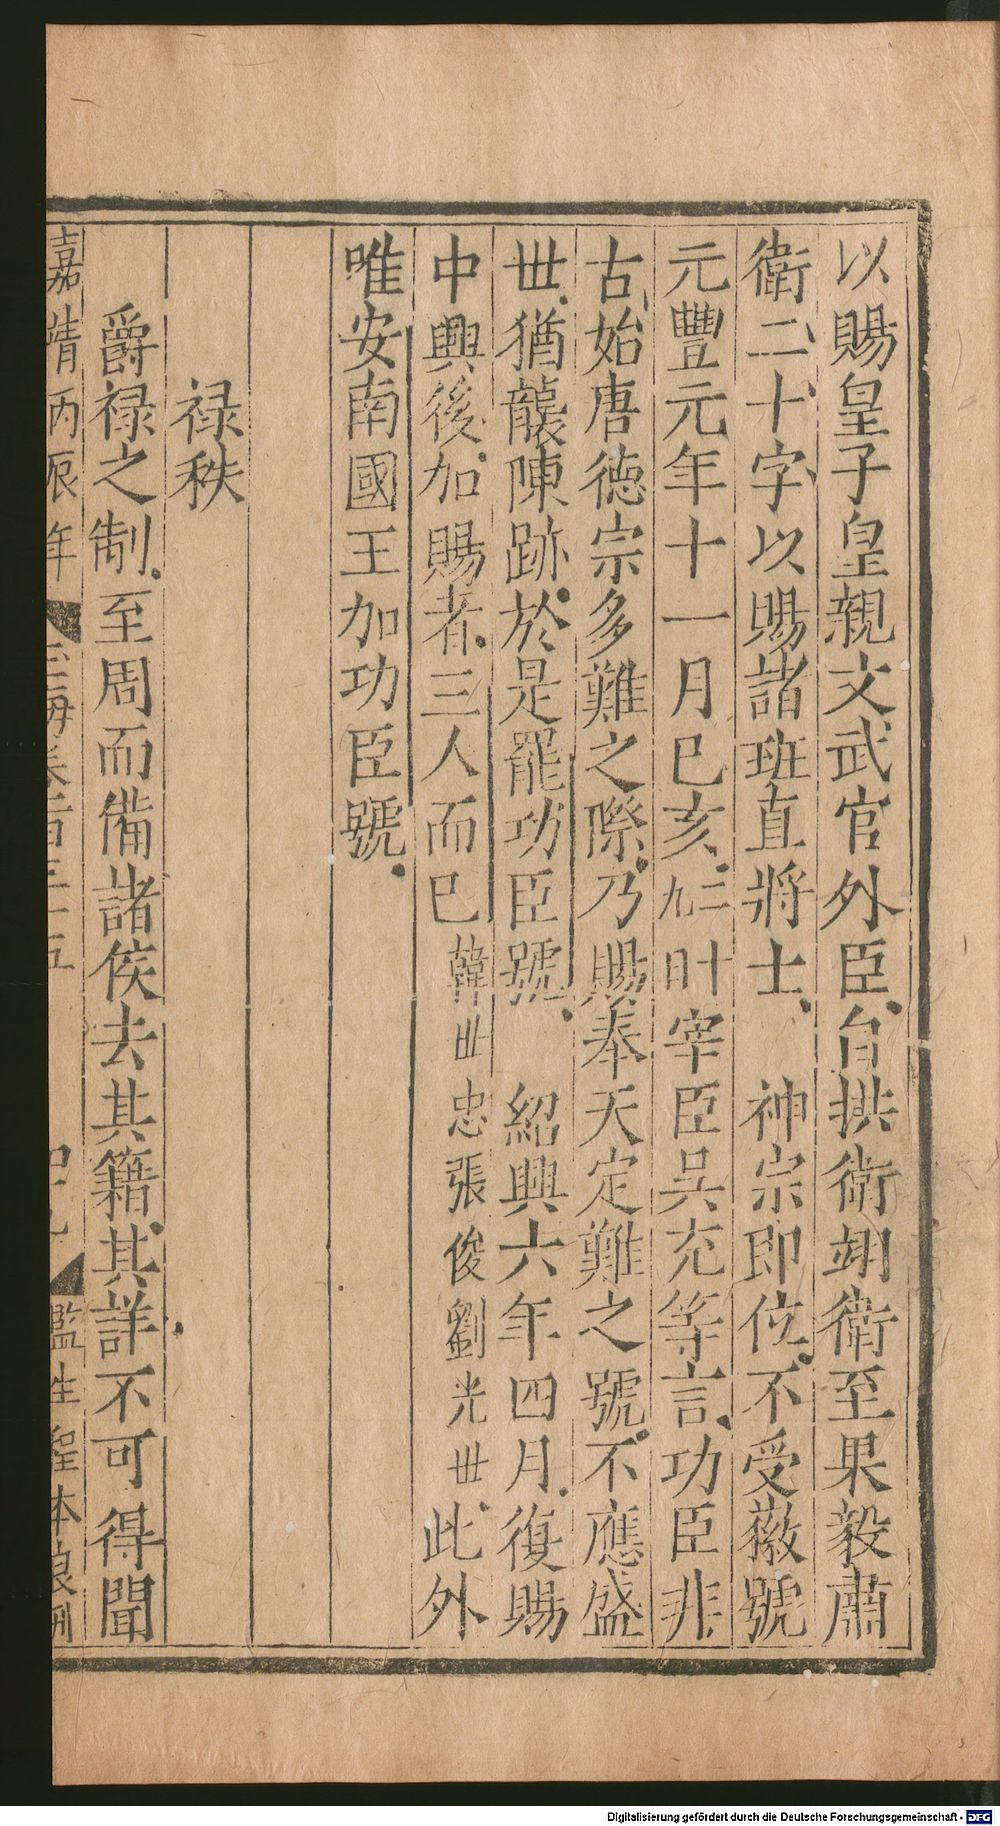 以賜皇子皇親文武官外臣自拱衛翊衛至果毅肅
衛二十字以賜諸班直將士 神宗即位不受徽號
元豐元年十一月巳亥二十九日宰臣吳充等言功臣非
古始唐德宗多難之際乃賜奉天定難之號不應盛
丗猶襲陳跡於是罷功臣號 紹興六年四月復賜
中興後加賜者三人而巳韓丗忠張俊劉光丗此外
唯安南國王加功臣號
禄秩
爵禄之制至周而備諸侯去其籍其詳不可得聞
嘉靖丙辰年 玉海卷一百三十五 監生程本良刊
Digitalisierung gefördert durch die Deutsche Forschungsgemeinschaft - DFG